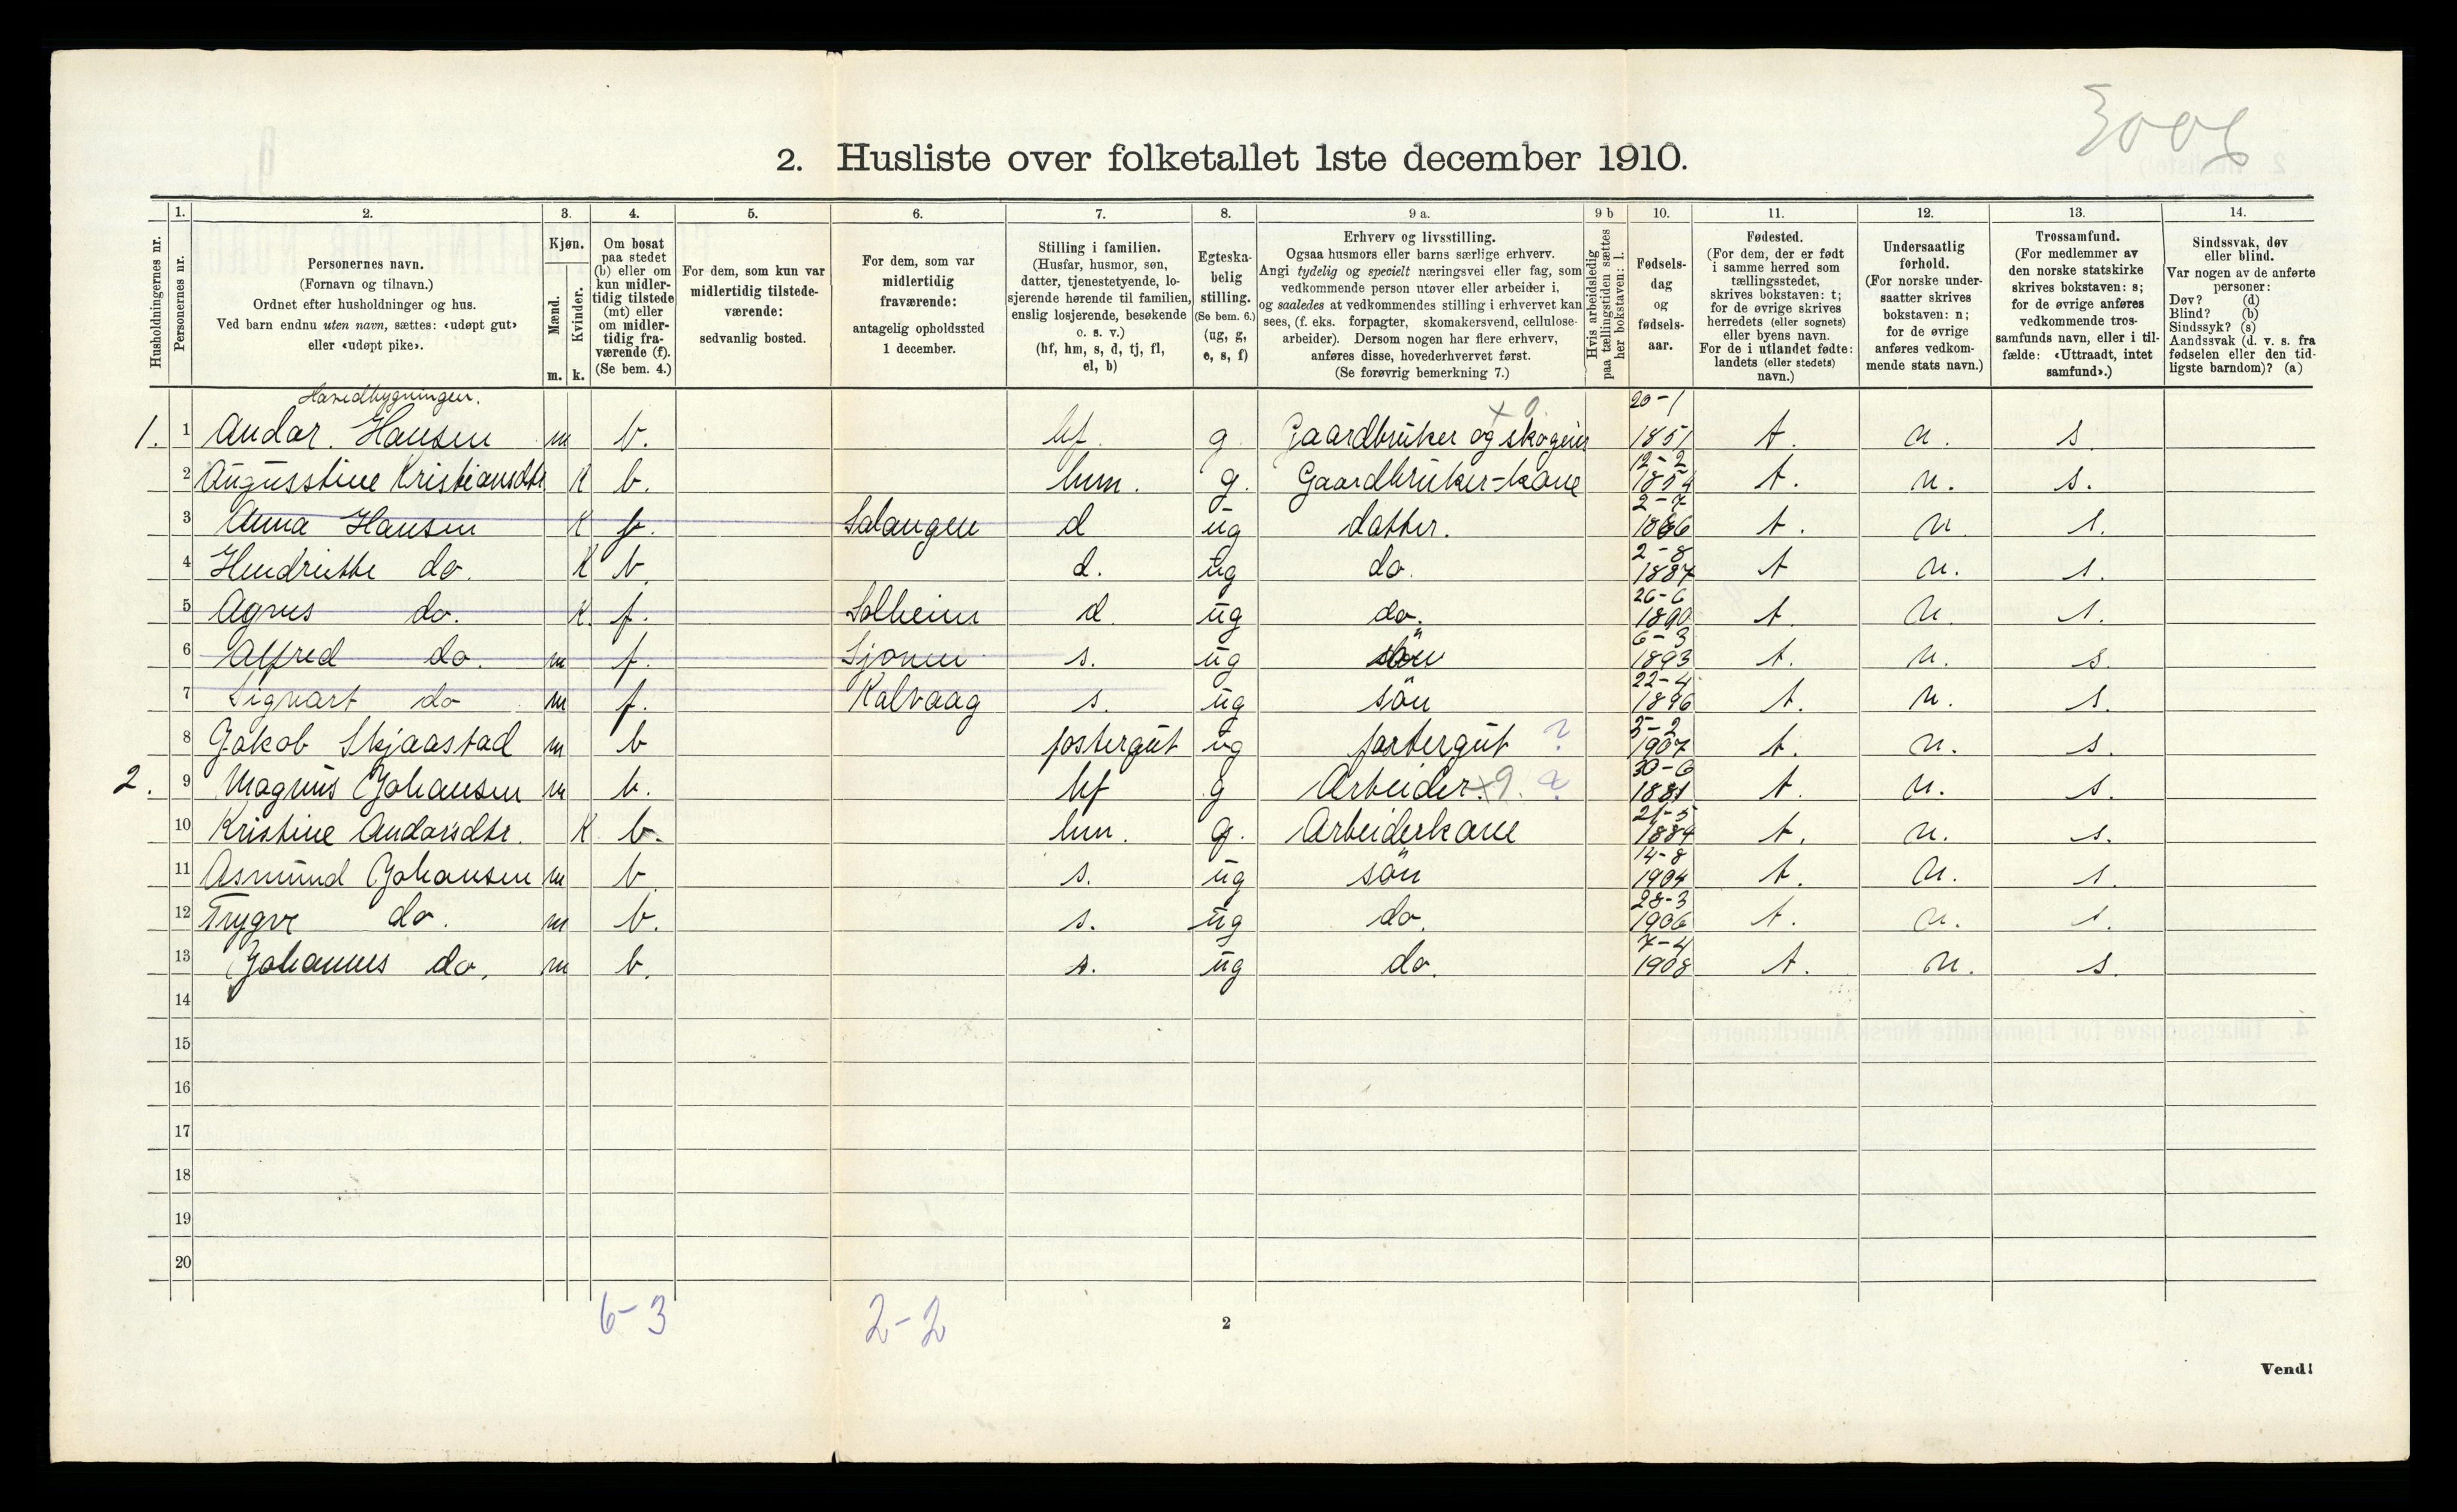 3008
2. Husliste over folketallet 1ste december 1910.
Husholdningernes nr.
1. Personernes nr.
2. Personernes navn. (Fornavn og tilnavn.) Ordnet efter husholdninger og hus. Ved barn endnu uten navn, sættes: «udøpt gut» eller «udøpt pike».
3. Kjøn. Mænd. m. Kvinder. k.
4. Om bosat paa stedet (b) eller om kun midler-tidig tilstede (mt) eller om midler-tidig fra-værende (f). (Se bem. 4.)
5. For dem, som kun var midlertidig tilstede-værende: sedvanlig bosted.
6. For dem, som var midlertidig fraværende: antagelig opholdssted 1 december.
7. Stilling i familien. (Husfar, husmor, søn, datter, tjenestetyende, lo-sjerende hørende til familien, enslig losjerende, besøkende o. s. v.) (hf, hm, s, d, tj, fl, el, b)
8. Egteska-belig stilling. (Se bem. 6.) (ug, g, e, s, f)
9 a. Erhverv og livsstilling. Ogsaa husmors eller barns særlige erhverv. Angi tydelig og specielt næringsvei eller fag, som vedkommende person utøver eller arbeider i, og saaledes at vedkommendes stilling i erhvervet kan sees, (f. eks. forpagter, skomakersvend, cellulose-arbeider). Dersom nogen har flere erhverv, anføres disse, hovederhvervet først. (Se forøvrig bemerkning 7.)
9 b Hvis arbeidsledig paa tællingstiden sættes her bokstaven: l.
10. Fødsels-dag og fødsels-aar.
11. Fødested. (For dem, der er født i samme herred som tællingsstedet, skrives bokstaven: t; for de øvrige skrives herredets (eller sognets) eller byens navn. For de i utlandet fødte: landets (eller stedets) navn.)
12. Undersaatlig forhold. (For norske under-saatter skrives bokstaven: n; for de øvrige anføres vedkom-mende stats navn.)
13. Trossamfund. (For medlemmer av den norske statskirke skrives bokstaven: s; for de øvrige anføres vedkommende tros-samfunds navn, eller i til-fælde: «Uttraadt, intet samfund».)
14. Sindssvak, døv eller blind. Var nogen av de anførte personer: Døv? (d) Blind? (b) Sindssyk? (s) Aandssvak (d. v. s. fra fødselen eller den tid-ligste barndom)? (a)
Hovedbygningen.
1. 1 Andor. Hansen m b. hf g Gaardbruker og skogeier 20-1 1851 t. n. s
2 Augusstine Kristiansdtr K b. hm. g. Gaardbruker-kone 12-2 1854 t. n. s.
3 Anna Hansen K f. Salangen d ug datter. 2-7 1886 t. n s.
4 Hendrikke do. K b. d. ug do. 2-8 1887 t n. s.
5 Agnes do. K. f. Solheim d ug do. 26-6 1890 t. n. s.
6 Alfred do. m f. Sjonen s. ug sön 6-3 1893 t. n. s.
7 Sigvart do m f. Kalvaag s. ug sön 22-4 1896 t. n. s.
8 Jakob Skjaastad m b fostergut ug fostergut ? 5-2 1907 t. n. s.
2. 9 Magnus Johansen m b. hf g Arbeider. x9. ? 30-6 1881 t. n. s.
10 Kristine Andorsdtr. K b. hm. g. Arbeiderkone 21-5 1884 t. n. s.
11 Asmund Johansen m b. s. ug sön 14-8 1904 t. n. s.
12 Trygve do. m b. s. ug do. 28-3 1906 t. n. s.
13 Johannes do. m b. s. ug do. 7-4 1908 t. n. s.
14
15
16
17
18
19
20
6-3 2-2
2
Vend!